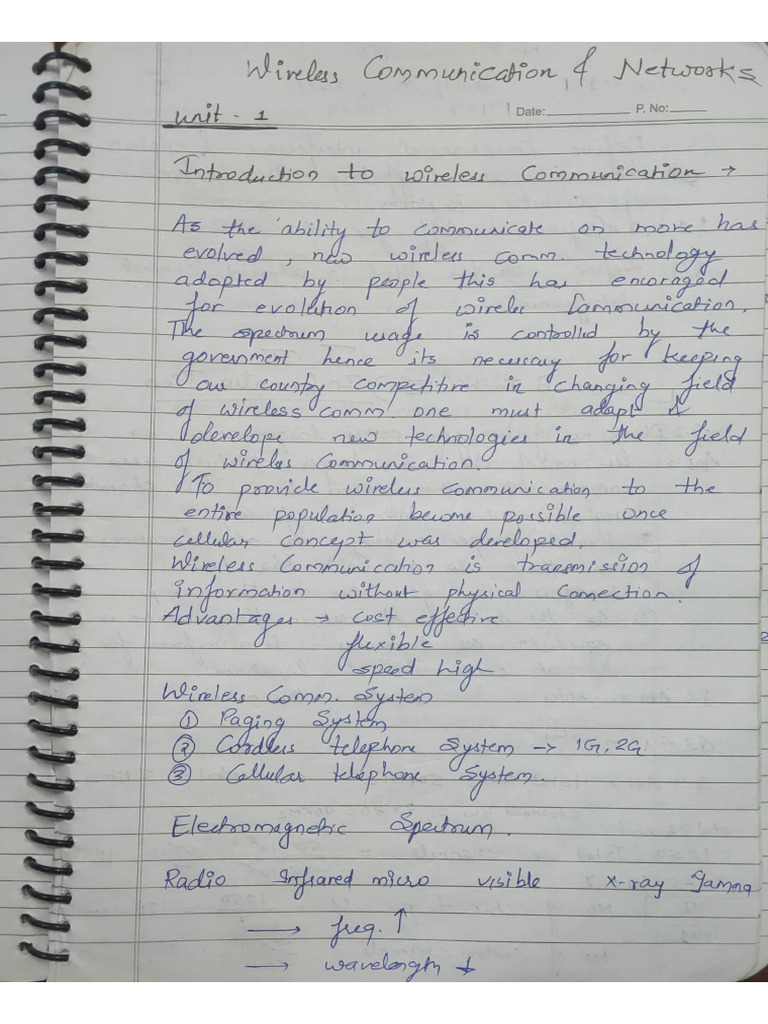 Wireless Communication & Networks
Unit - 1
Date: P. No:
Introduction to wireless Communication →
As the ability to communicate on more has
evolved, new wireless comm. technology
adopted by people this has encoraged
for evolution of wireles Communication.
The spectrum usage is controlled by the
government hence its necessary for keeping
our country competitive in changing field
of wireless comm. one must adapt &
develope new technologies in the field
of wireless Communication.
To provide wireless communication to the
entire population become possible once
cellular concept was developed.
Wireless Communication is transmission of
information without physical connection.
Advantages → cost effective
flexible
speed high
Wireless Comm. System
① Paging System
② Cordless telephone System → 1G, 2G
③ Cellular telephone System.
Electromagnetic Spectrum.
Radio Infrared micro visible X-ray Gamma
→ freq. ↑
→ wavelength ↓